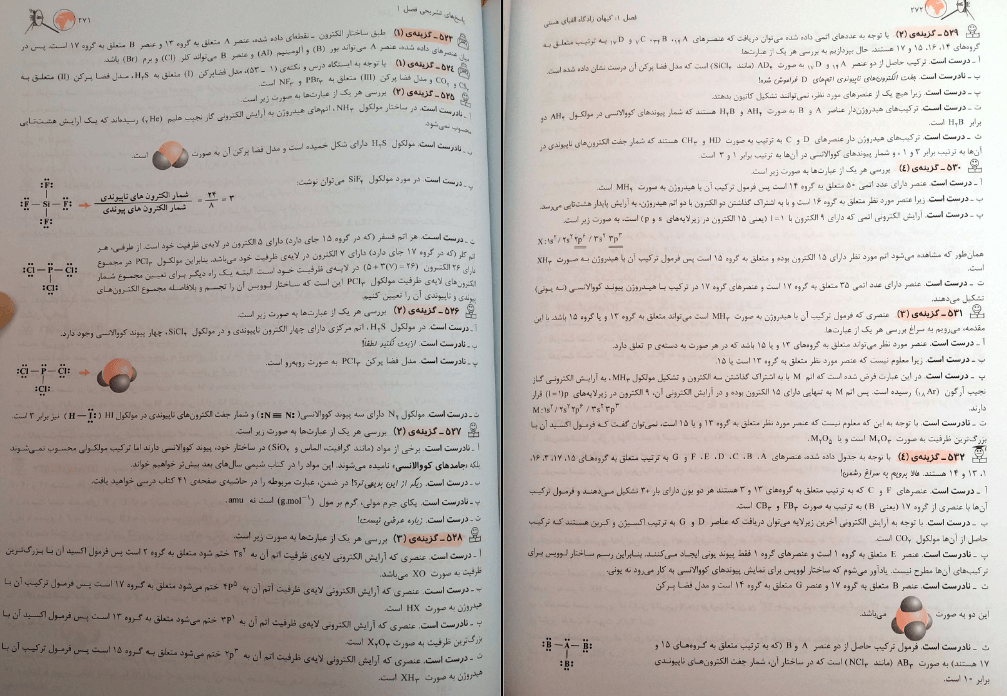 ۲۷۱
پاسخ‌های تشریحی فصل ۱
۵۲۳ ـ گزینه‌ی (۱) طبق ساختار الکترون ـ نقطه‌ای داده شده، عنصر A متعلق به گروه ۱۳ و عنصر B متعلق به گروه ۱۷ است. پس در
عنصرهای داده شده، عنصر A می‌تواند بور (B) و آلومینیم (Al) و عنصر B می‌تواند کلر (Cl) و برم (Br) باشد.
۵۲۴ ـ گزینه‌ی (۱) با توجه به ایستگاه درس و نکته‌ی (۱ ـ ۵۳)، مدل فضاپرکن (I) متعلق به H₂S، مدل فضا پرکن (II) متعلق به
CO₂ و مدل فضا پرکن (III) متعلق به PBr₃ و NF₃ است.
۵۲۵ ـ گزینه‌ی (۲) بررسی هر یک از عبارت‌ها به صورت زیر است.
آ ـ نادرست است. در ساختار مولکول NH₃، اتم‌های هیدروژن به آرایش الکترونی گاز نجیب هلیم (₂He) رسیده‌اند که یک آرایش هشت‌تایی
محسوب نمی‌شود.
ب ـ نادرست است. مولکول H₂S دارای شکل خمیده است و مدل فضا پرکن آن به صورت است.
پ ـ درست است. در مورد مولکول SiF₄ می‌توان نوشت:
شمار الکترون های ناپیوندی / شمار الکترون های پیوندی = ۲۴/۸ = ۳
:F: :F — Si — F: :F:
ت ـ درست است. هر اتم فسفر (که در گروه ۱۵ جای دارد) دارای ۵ الکترون در لایه‌ی ظرفیت خود است. از طرفی، هر
اتم کلر (که در گروه ۱۷ جای دارد) دارای ۷ الکترون در لایه‌ی ظرفیت خود می‌باشد، بنابراین مولکول PCl₃ در مجموع
دارای ۲۶ الکترون (۲۶ = (۷)۳ + ۵) در لایه‌ی ظرفیت خود است. البته یک راه دیگر برای تعیین مجموع شمار
الکترون‌های لایه‌ی ظرفیت مولکول PCl₃ این است که ساختار لوویس آن را تجسم و بلافاصله مجموع الکترون‌های
پیوندی و ناپیوندی آن را تعیین کنیم.
:Cl — P — Cl: :Cl:
۵۲۶ ـ گزینه‌ی (۲) بررسی هر یک از عبارت‌ها به صورت زیر است.
آ ـ درست است. در مولکول H₂S، اتم مرکزی دارای چهار الکترون ناپیوندی و در مولکول SiCl₄، چهار پیوند کووالانسی وجود دارد.
ب ـ نادرست است. اذیت نکنید لطفاً!
پ ـ نادرست است. مدل فضا پرکن PCl₃ به صورت روبه‌رو است.
:Cl — P — Cl: :Cl:
ت ـ درست است. مولکول N₂ دارای سه پیوند کووالانسی (:N ≡ N:) و شمار جفت الکترون‌های ناپیوندی در مولکول HI (H — I:) نیز برابر ۳ است.
۵۲۷ ـ گزینه‌ی (۲) بررسی هر یک از عبارت‌ها به صورت زیر است.
آ ـ نادرست است. برخی از مواد (مانند گرافیت، الماس و SiO₂) در ساختار خود، پیوند کووالانسی دارند اما ترکیب مولکولی محسوب نمی‌شوند
بلکه (جامدهای کووالانسی) نامیده می‌شوند. این مواد را در کتاب شیمی سال‌های بعد بیش‌تر خواهیم خواند.
ب ـ درست است. دیگر از این بدیهی‌تر؟! در ضمن، عبارت مربوطه را در حاشیه‌ی صفحه‌ی ۴۱ کتاب درسی خواهید یافت.
پ ـ نادرست است. یکای جرم مولی، گرم بر مول (g.mol⁻¹) است نه amu.
ت ـ درست است. زیاده عرضی نیست!
۵۲۸ ـ گزینه‌ی (۳) بررسی هر یک از عبارت‌ها به صورت زیر است.
آ ـ درست است. عنصری که آرایش الکترونی لایه‌ی ظرفیت اتم آن به 3s² ختم می‌شود متعلق به گروه ۲ است پس فرمول اکسید آن با بزرگ‌ترین
ظرفیت به صورت XO می‌باشد.
ب ـ درست است. عنصری که آرایش الکترونی لایه‌ی ظرفیت اتم آن به 4p⁵ ختم می‌شود متعلق به گروه ۱۷ است پس فرمول ترکیب آن با
هیدروژن به صورت HX است.
پ ـ نادرست است. عنصری که آرایش الکترونی لایه‌ی ظرفیت اتم آن به 3p¹ ختم می‌شود متعلق به گروه ۱۳ است پس فرمول اکسید آن با
بزرگ‌ترین ظرفیت به صورت X₂O₃ است.
ت ـ درست است. عنصری که آرایش الکترونی لایه‌ی ظرفیت اتم آن به 2p³ ختم می‌شود متعلق به گروه ۱۵ است پس فرمول ترکیب آن با
هیدروژن به صورت XH₃ است.
فصل ۱، کیهان زادگاه الفبای هستی
۲۷۲
۵۲۹ ـ گزینه‌ی (۲) با توجه به عددهای اتمی داده شده می‌توان دریافت که عنصرهای به ترتیب متعلق به
گروه‌های ۱۴، ۱۶، ۱۵ و ۱۷ هستند. حال بپردازیم به بررسی هر یک از عبارت‌ها.
آ ـ درست است. ترکیب حاصل از دو عنصر ₁₄A و ₁₇D به صورت AD₄ (مانند SiCl₄) است که مدل فضا پرکن آن درست نشان داده شده است.
ب ـ نادرست است. جفت الکترون‌های ناپیوندی اتم‌های D فراموش شده!
پ ـ درست است. زیرا هیچ یک از عنصرهای مورد نظر، نمی‌توانند تشکیل کاتیون بدهند.
ت ـ درست است. ترکیب‌های هیدروژن‌دار عناصر A و B به صورت AH₄ و H₂B هستند که شمار پیوندهای کووالانسی در مولکول AH₄ دو
برابر H₂B است.
ث ـ درست است. ترکیب‌های هیدروژن دار عنصرهای D و C به ترتیب به صورت HD و CH₃ هستند که شمار جفت الکترون‌های ناپیوندی در
آن‌ها به ترتیب برابر ۳ و ۱ و شمار پیوندهای کووالانسی در آن‌ها به ترتیب برابر ۱ و ۳ است.
۵۳۰ ـ گزینه‌ی (۴) بررسی هر یک از عبارت‌ها به صورت زیر است.
آ ـ درست است. عنصر دارای عدد اتمی ۵۰ متعلق به گروه ۱۴ است پس فرمول ترکیب آن با هیدروژن به صورت MH₄ است.
ب ـ درست است. زیرا عنصر مورد نظر متعلق به گروه ۱۶ است و با به اشتراک گذاشتن دو الکترون با دو اتم هیدروژن، به آرایش پایدار هشت‌تایی می‌رسد.
پ ـ درست است. آرایش الکترونی اتمی که دارای ۹ الکترون با l = ۱ (یعنی ۱۵ الکترون در زیرلایه‌های s و p) است، به صورت زیر است.
X: 1s² / 2s² 2p⁶ / 3s² 3p³
همان‌طور که مشاهده می‌شود اتم مورد نظر دارای ۱۵ الکترون بوده و متعلق به گروه ۱۵ است پس فرمول ترکیب آن با هیدروژن به صورت XH₃
است.
ت ـ درست است. عنصر دارای عدد اتمی ۳۵ متعلق به گروه ۱۷ است و عنصرهای گروه ۱۷ در ترکیب با هیدروژن پیوند کووالانسی (نه یونی)
تشکیل می‌دهند.
۵۳۱ ـ گزینه‌ی (۳) عنصری که فرمول ترکیب آن با هیدروژن به صورت MH₃ است می‌تواند متعلق به گروه ۱۳ و یا گروه ۱۵ باشد. با این
مقدمه، می‌رویم به سراغ بررسی هر یک از عبارت‌ها.
آ ـ درست است. عنصر مورد نظر می‌تواند متعلق به گروه‌های ۱۳ و یا ۱۵ باشد که در هر صورت به دسته‌ی p تعلق دارد.
ب ـ درست است. زیرا معلوم نیست که عنصر مورد نظر متعلق به گروه ۱۳ است یا ۱۵.
پ ـ درست است. در این عبارت فرض شده است که اتم M با به اشتراک گذاشتن سه الکترون و تشکیل مولکول MH₃، به آرایش الکترونی گاز
نجیب آرگون (₁₈Ar) رسیده است. پس اتم M به تنهایی دارای ۱۵ الکترون بوده و در آرایش الکترونی آن، ۹ الکترون در زیرلایه‌های p (l = ۱) قرار
دارند.
M: 1s² / 2s² 2p⁶ / 3s² 3p³
ت ـ نادرست است. با توجه به این که معلوم نیست که عنصر مورد نظر متعلق به گروه ۱۳ و یا ۱۵ است، نمی‌توان گفت که فرمول اکسید آن با
بزرگ‌ترین ظرفیت به صورت M₂O₃ است و یا M₂O₅.
۵۳۲ ـ گزینه‌ی (۴) با توجه به جدول داده شده، عنصرهای A، B، C، D، E، F و G به ترتیب متعلق به گروه‌های ۱۵، ۱۷، ۳، ۱۶،
۱، ۱۳ و ۱۴ هستند. حالا برویم به سراغ
آ ـ درست است. عنصرهای F و C که به ترتیب متعلق به گروه‌های ۱۳ و ۳ هستند هر دو یون دارای بار +۳ تشکیل می‌دهند و فرمول ترکیب
آن‌ها با عنصری از گروه ۱۷ (یعنی B) به ترتیب به صورت FB₃ و CB₃ است.
ب ـ درست است. با توجه به آرایش الکترونی آخرین زیرلایه می‌توان دریافت که عناصر D و G به ترتیب اکسیژن و کربن هستند که ترکیب
حاصل از آن‌ها مولکول CO₂ است.
پ ـ درست است. عنصر E متعلق به گروه ۱ است و عنصرهای گروه ۱ فقط پیوند یونی ایجاد می‌کنند. بنابراین رسم ساختار لوویس برای
ترکیب‌های آن‌ها مطرح نیست. یادآور می‌شوم که ساختار لوویس برای نمایش پیوندهای کووالانسی به کار می‌رود نه یونی.
ت ـ درست است. عنصر B متعلق به گروه ۱۷ و عنصر G متعلق به گروه ۱۴ است و مدل فضا پرکن
این دو به صورت می‌باشد.
ث ـ نادرست است. فرمول ترکیب حاصل از دو عنصر A و B (که به ترتیب متعلق به گروه‌های ۱۵ و
۱۷ هستند) به صورت AB₃ (مانند NCl₃) است که در ساختار آن، شمار جفت الکترون‌های ناپیوندی
برابر ۱۰ است.
:B — A — B: :B: